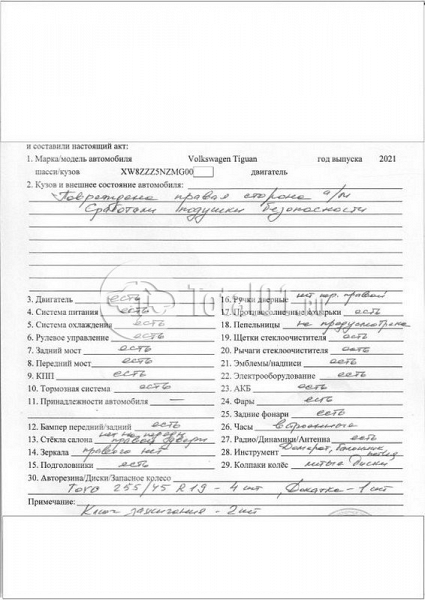 и составили настоящий акт:
1. Марка/модель автомобиля Volkswagen Tiguan год выпуска 2021
шасси/кузов XW8ZZZ5NZMG00 двигатель
2. Кузов и внешнее состояние автомобиля:
Повреждена правая сторона а/м
Сработали подушки безопасности
Total01.ru
3. Двигатель есть 16. Ручки дверные нет пер. правой
4. Система питания есть 17. Противосолнечные козырьки есть
5. Система охлаждения есть 18. Пепельницы не предусмотрена
6. Рулевое управление есть 19. Щетки стеклоочистителя есть
7. Задний мост есть 20. Рычаги стеклоочистителя есть
8. Передний мост есть 21. Эмблемы/надписи есть
9. КПП есть 22. Электрооборудование есть
10. Тормозная система есть 23. АКБ есть
11. Принадлежности автомобиля — 24. Фары есть
25. Задние фонари есть
12. Бампер передний/задний есть 26. Часы встроенные
13. Стёкла салона нет на передн. правой двери 27. Радио/Динамики/Антенна есть
14. Зеркала правого нет 28. Инструмент Домкрат, балонник
15. Подголовники есть 29. Колпаки колёс литые диски
30. Авторезина/Диски/Запасное колесо
Toyo 255/45 R19 - 4 шт Докатка - 1 шт
Примечание:
Ключ зажигания - 2 шт